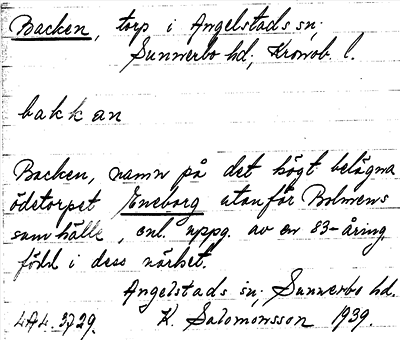 Backen, torp i Angelstads sn;
Sunnerbo hd, Kronob. l.
bakkan
Backen, namn på det högt belägna
ödetorpet Eneborg utanför Bolmens
samhälle, enl. uppg. av en 83-åring
född i dess närhet.
Angelstads sn; Sunnerbo hd.
4A4. 3729. K. Salomonsson 1939.